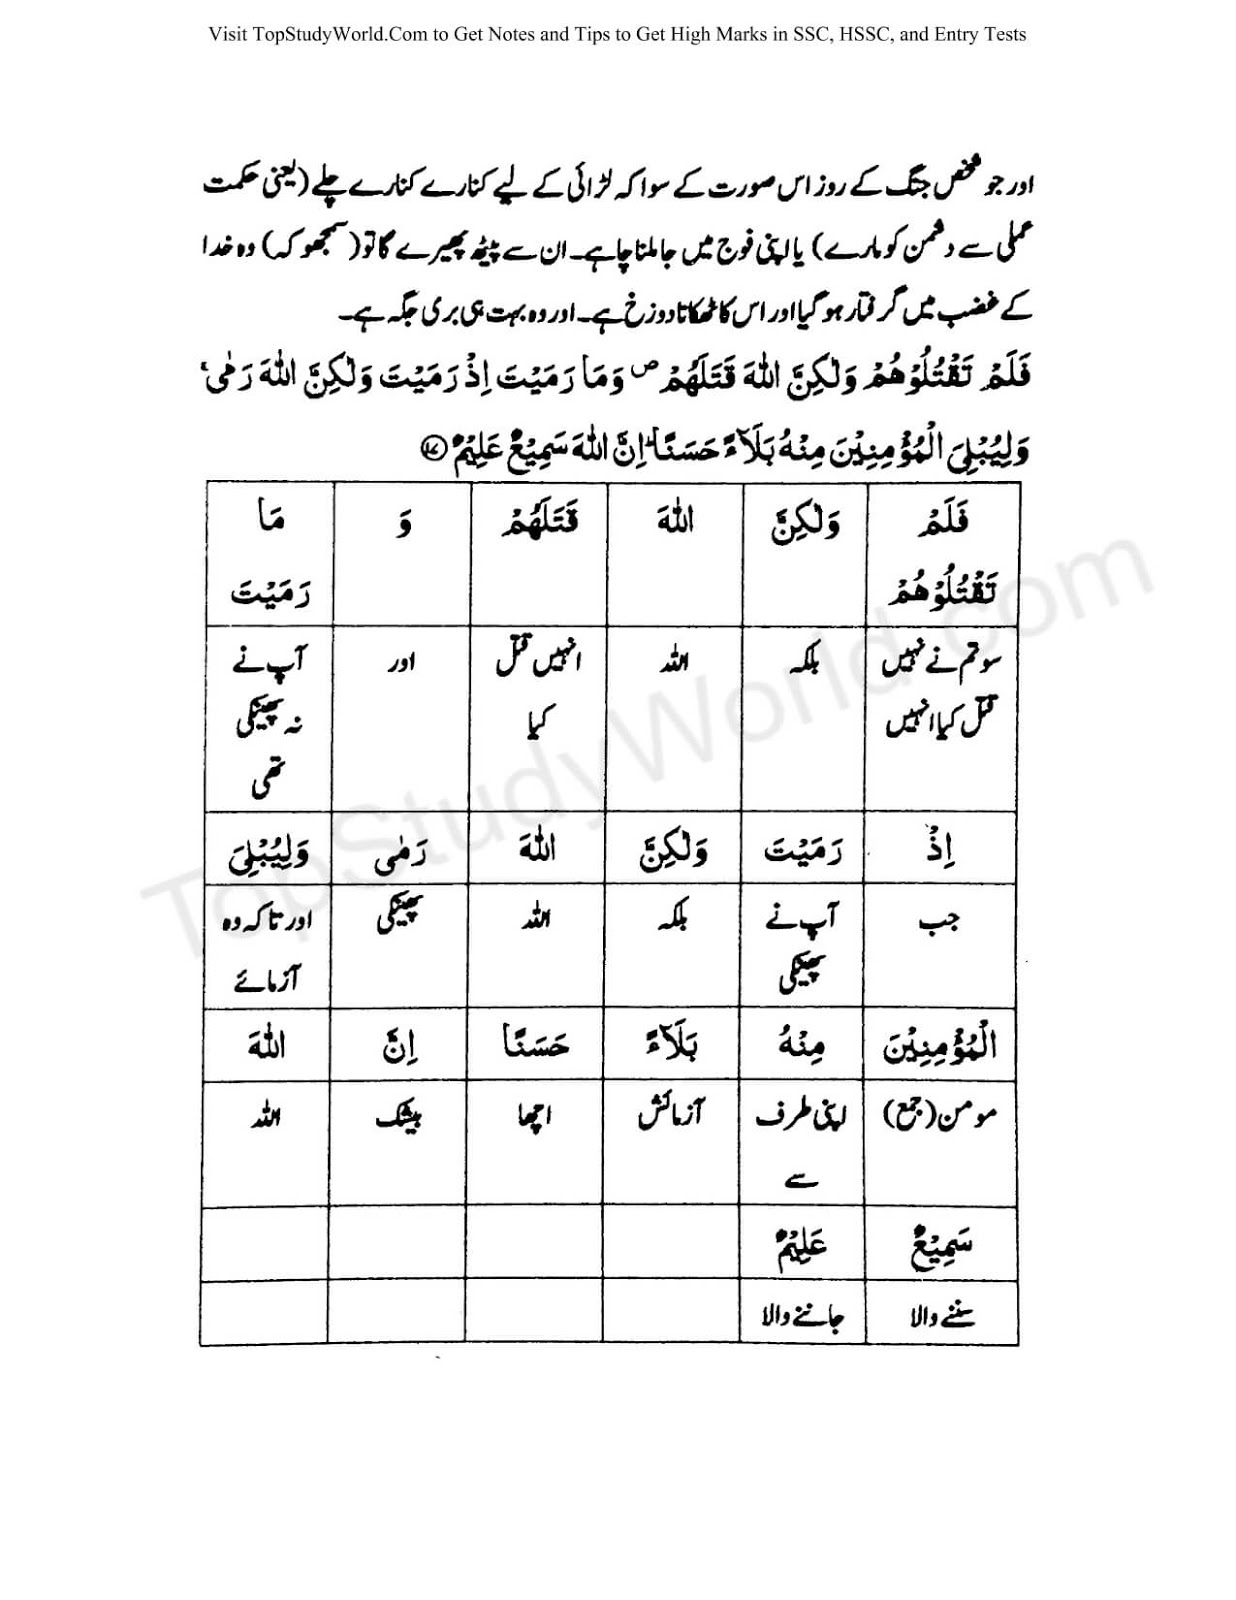 Visit TopStudyWorld.Com to Get Notes and Tips to Get High Marks in SSC, HSSC, and Entry Tests
اور جو شخص جنگ کے روز اس صورت کے سوا کہ لڑائی کے لیے کنارے کنارے چلے (یعنی حکمت
عملی سے دشمن کو مارے) یا اپنی فوج میں جا ملنا چاہے۔ ان سے پیٹھ پھیرے گا تو (سمجھو کہ) وہ خدا
کے غضب میں گرفتار ہو گیا اور اس کا ٹھکانا دوزخ ہے۔ اور وہ بہت ہی بری جگہ ہے۔
فَلَمْ تَقْتُلُوْهُمْ وَلٰكِنَّ اللّٰهَ قَتَلَهُمْ ۖ وَمَا رَمَيْتَ اِذْ رَمَيْتَ وَلٰكِنَّ اللّٰهَ رَمٰى ۚ
وَلِيُبْلِىَ الْمُؤْمِنِيْنَ مِنْهُ بَلَآءً حَسَنًا ؕ اِنَّ اللّٰهَ سَمِيْعٌ عَلِيْمٌ ﴿۱۷﴾
فَلَمْ وَلٰكِنَّ اللّٰهَ قَتَلَهُمْ وَ مَا
تَقْتُلُوْهُمْ رَمَيْتَ
سو تم نے نہیں بلکہ اللہ انہیں قتل اور آپ نے
قتل کیا انہیں کیا نہ پھینکی
تھی
اِذْ رَمَيْتَ وَلٰكِنَّ اللّٰهَ رَمٰى وَلِيُبْلِىَ
جب آپ نے بلکہ اللہ پھینکی اور تاکہ وہ
پھینکی آزمائے
الْمُؤْمِنِيْنَ مِنْهُ بَلَآءً حَسَنًا اِنَّ اللّٰهَ
مومن (جمع) اپنی طرف آزمائش اچھا بیشک اللہ
سے
سَمِيْعٌ عَلِيْمٌ
سننے والا جاننے والا
TopStudyWorld.com